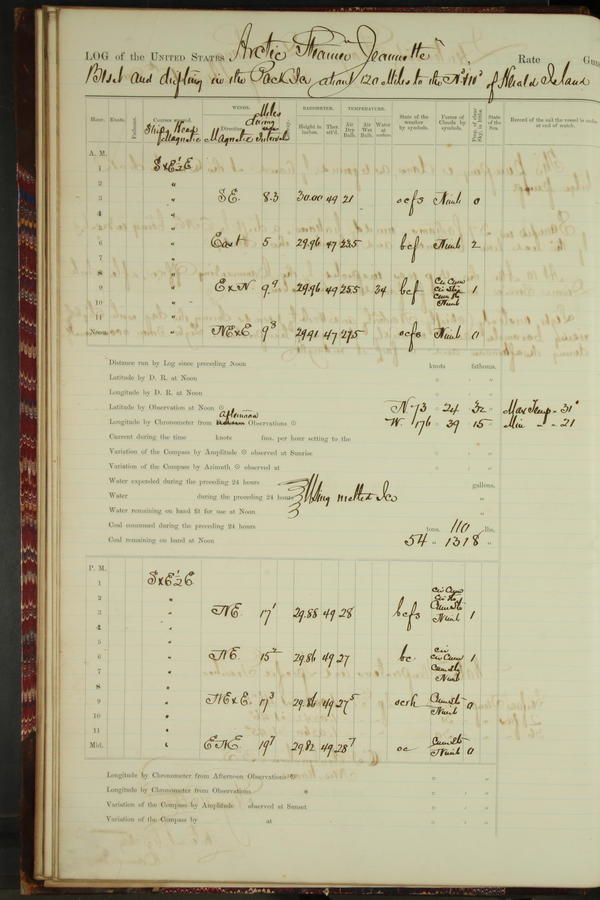 LOG of the UNITED STATES Arctic Steamer "Jeannette" Rate Gun
Beset and drifting in the Pack Ice about 120 Miles to the N'd & W'd of Herald Island
WINDS. BAROMETER. TEMPERATURE.
Hour. Knots. Fathoms. Courses steered. Direction. Height in inches. Ther. att'd. Air Dry Bulb. Air Wet Bulb. Water at surface. State of the weather by symbols. Forms of Clouds by symbols. Prop. of clear Sky, in 10ths. State of the Sea. Record of the sail the vessel is under at end of watch.
Ship's Head Magnetic Magnetic Miles during Interval
A. M.
1 SxE½E
2 "
3 " SE. 8.3 30.00 49 21 ocfs Nimb 0
4 "
5 "
6 " East 5 29.96 47 23.5 bcf Nimb 2
7 "
8 "
9 " ExN 9.9 29.96 49 25.5 34 bcf Cir Cum Cir Str Cum Str Nimb 1
10 "
11 "
Noon. " NExE 9.8 29.91 47 29.5 ocfs Nimb 0
Distance run by Log since preceding Noon knots fathoms.
Latitude by D. R. at Noon ° ' "
Longitude by D. R. at Noon ° ' "
Latitude by Observation at Noon N. 73 - 24 - 32 - Max Temp - 31°
Longitude by Chronometer from Afternoon Observations W. 176 - 39 15 - Min " - 21
Current during the time knots fms. per hour setting to the
Variation of the Compass by Amplitude observed at Sunrise ° ' "
Variation of the Compass by Azimuth observed at ° ' "
Water expended during the preceding 24 hours gallons.
Water during the preceding 24 hours Using melted Ice "
Water remaining on hand fit for use at Noon "
Coal consumed during the preceding 24 hours tons. 110 lbs.
Coal remaining on hand at Noon 54 " 1318 "
P. M.
1 SxE½E
2 "
3 " NE. 17.1 29.88 49 28 bcfs Cir Cum Cir Str Cum Str Nimb 1
4 "
5 "
6 " NE. 15.2 29.86 49 27 bc Cir Cir Cum Cum Str Nimb 1
7 "
8 "
9 " NExE. 17.3 29.86 49 27.5 Cum Str Nimb 0
10 "
11 "
Mid. " ENE 19.7 29.82 49 28.7 oc Cum Str Nimb 0
Longitude by Chronometer from Afternoon Observations ° ' "
Longitude by Chronometer from Observations ° ' "
Variation of the Compass by Amplitude observed at Sunset ° ' "
Variation of the Compass by at ° ' "